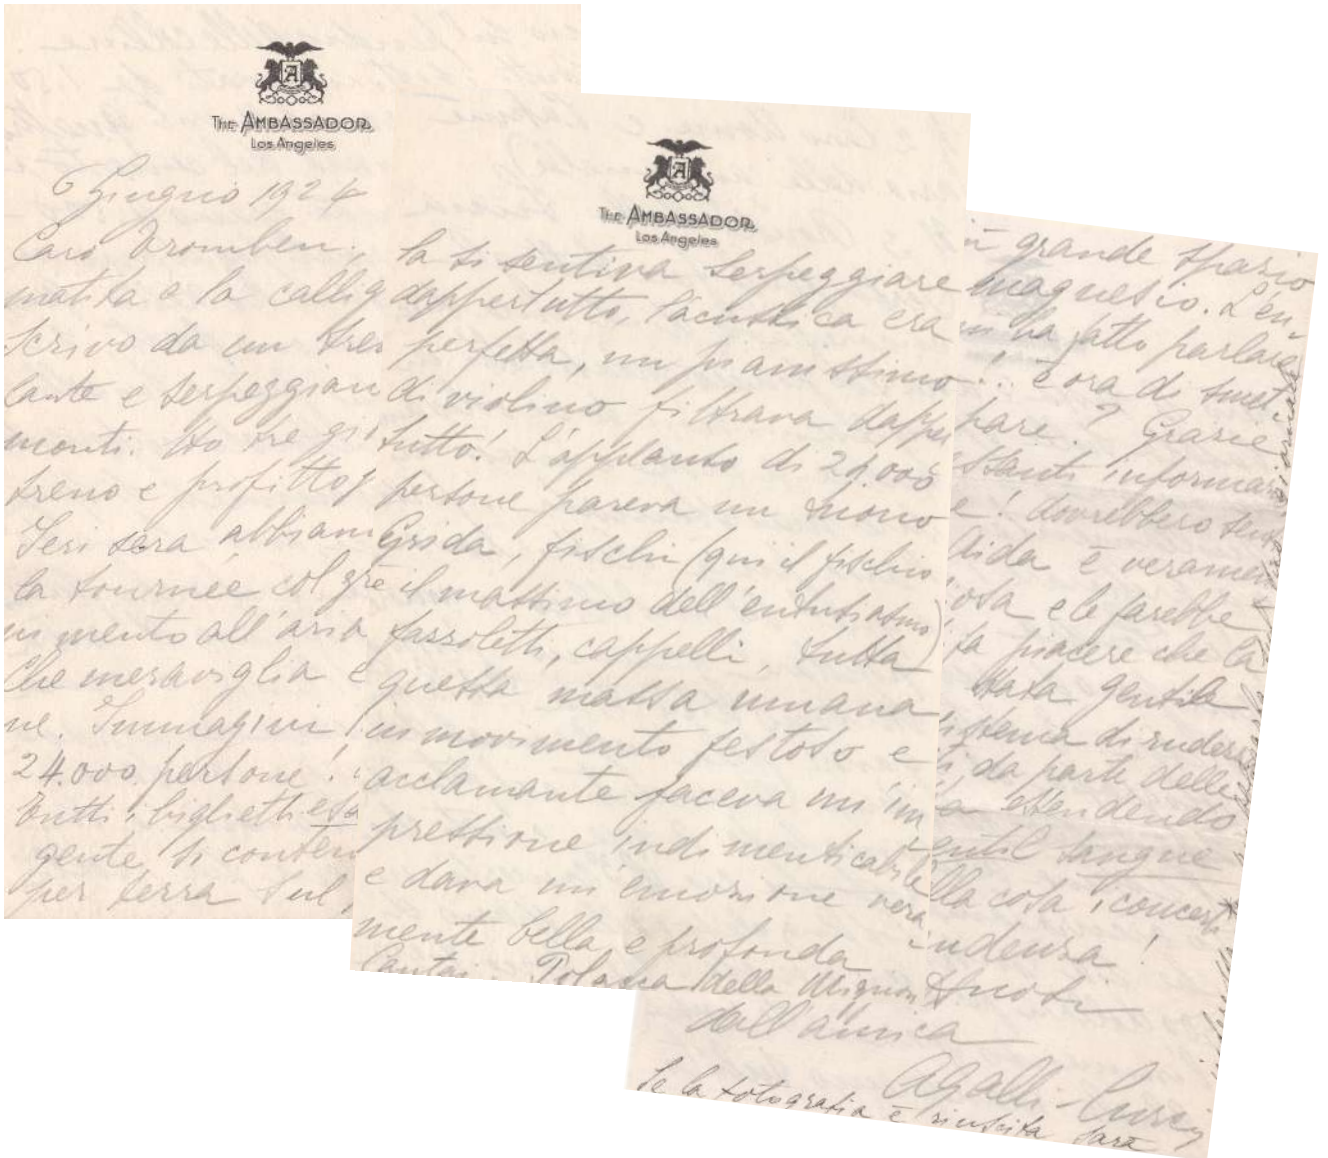 A
The AMBASSADOR
Los Angeles
6 Giugno 1924
Caro Tromben,
matita e la callig
scrivo da un tre
lante e serpeggian
monti. Ho tre gi
treno e profitto
Ieri sera abbiam
la tournée col gr
ni mento all'aria
Che meraviglia e
ne. Immagini
24.000 persone!
Tutti i biglietti esa
gente si conten
per terra sul
A
The AMBASSADOR
Los Angeles
la si sentiva serpeggiare
dappertutto, l'acustica era
perfetta, un pianissimo
di violino filtrava dapper
tutto! L'applauso di 24.000
persone pareva un tuono
Grida, fischi (qui il fischio
è il massimo dell'entusiasmo)
fazzoletti, cappelli, tutta
questa massa umana
in movimento festoso e
acclamante faceva un'im
pressione indimenticabile
e dava un'emozione vera
mente bella e profonda
Cantai Polacca della Mignon
grande spazio
magnesio. L'en
m'ha fatto parlare
è ora di smet
pare? Grazie
stanti informaz
e! dovrebbero sent
Aida è veramen
osa e le farebbe
ta piacere che la
stata gentile
istema di
da parte delle
estendendo
gentil sangue
lla cosa i concerti
ndenza!
dall'amica
AGalli-Curci
Se la fotografia è riuscita sarà